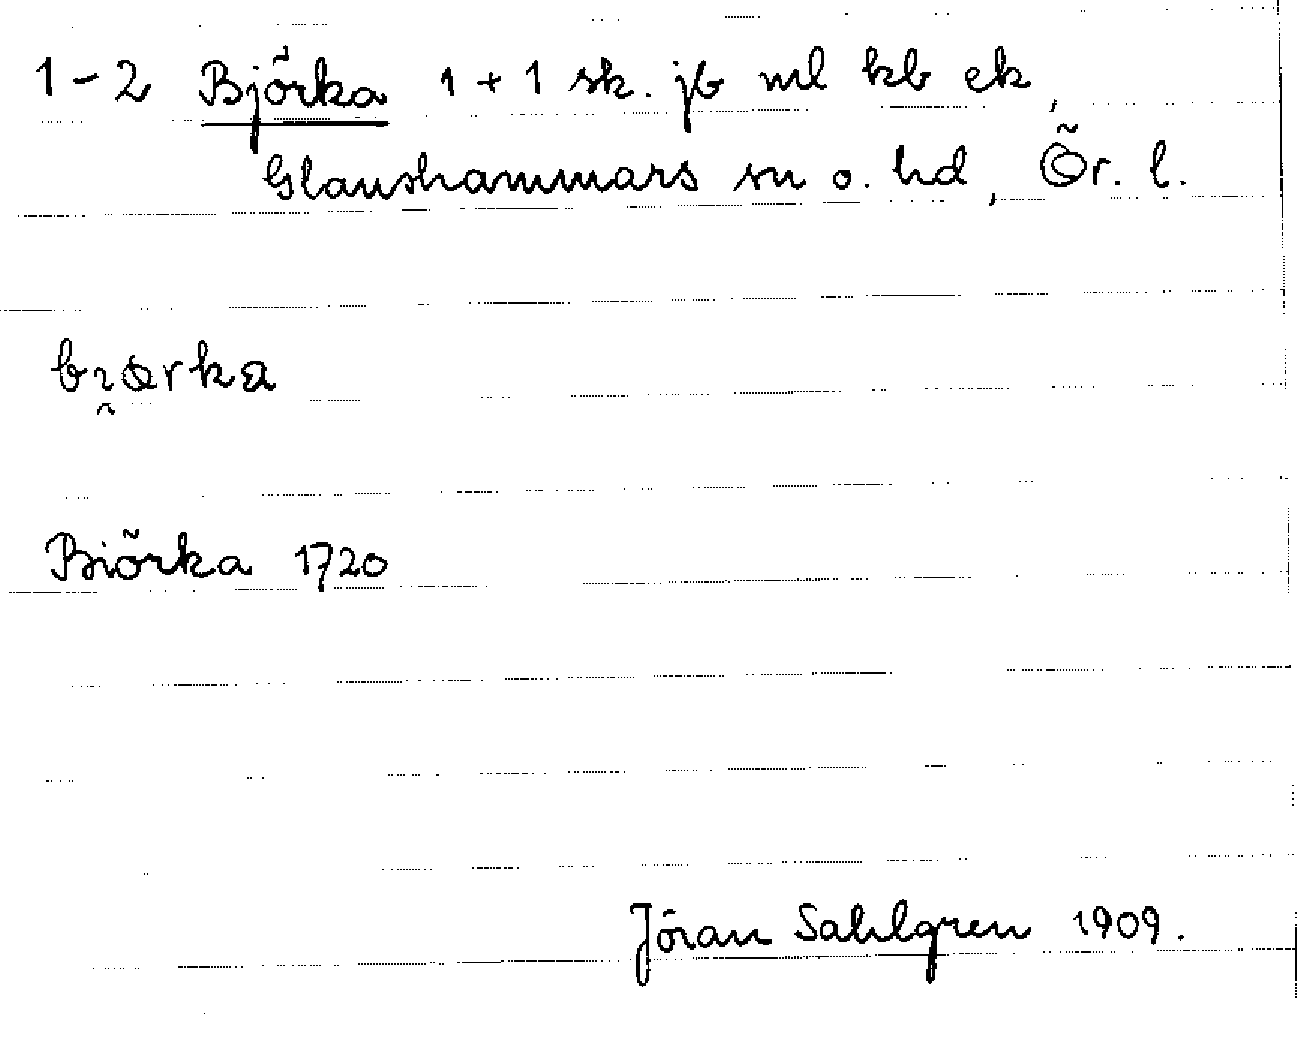 1-2 Björka 1+1 sk. jb ml kb ek,
Glanshammars sn o. hd, Ör. l.
bı̯ørka
Biörka 1720
Jöran Sahlgren 1909.